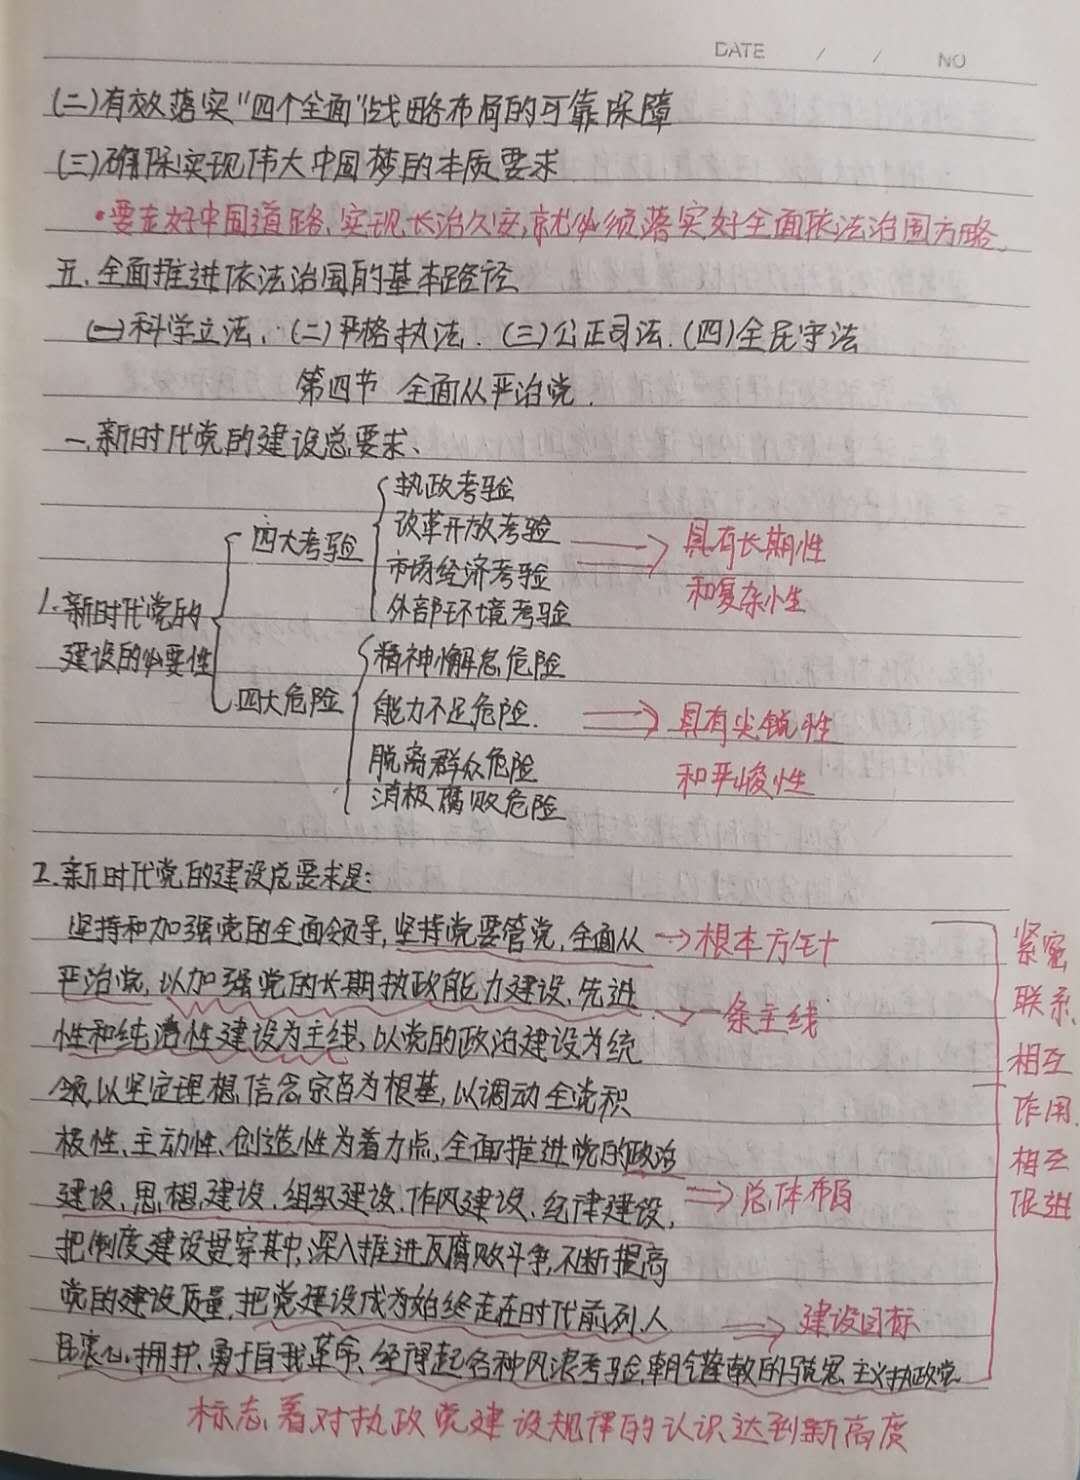 DATE / / NO
(二)有效落实"四个全面"战略布局的可靠保障
(三)确保实现伟大中国梦的本质要求
•要走好中国道路,实现长治久安,就必须落实好全面依法治国方略.
五.全面推进依法治国的基本路径
(一)科学立法.(二)严格执法.(三)公正司法.(四)全民守法
第四节 全面从严治党.
一.新时代党的建设总要求、
1.新时代党的
建设的必要性
四大考验
执政考验
改革开放考验
市场经济考验
外部环境考验
具有长期性
和复杂性
四大危险
精神懈怠危险
能力不足危险.
脱离群众危险
消极腐败危险
具有尖锐性
和严峻性
2.新时代党的建设总要求是:
坚持和加强党的全面领导,坚持党要管党,全面从→根本方针
严治党,以加强党的长期执政能力建设、先进
→一条主线
性和纯洁性建设为主线,以党的政治建设为统
领,以坚定理想信念宗旨为根基,以调动全党积
极性、主动性、创造性为着力点,全面推进党的政治
建设、思想建设、组织建设、作风建设、纪律建设,
⇒总体布局
把制度建设贯穿其中,深入推进反腐败斗争,不断提高
党的建设质量,把党建设成为始终走在时代前列、人
⇒建设目标
民衷心拥护、勇于自我革命、经得起各种风浪考验,朝气蓬勃的马克思主义执政党
紧密
联系,
相互
作用,
相互
促进
标志着对执政党建设规律的认识达到新高度